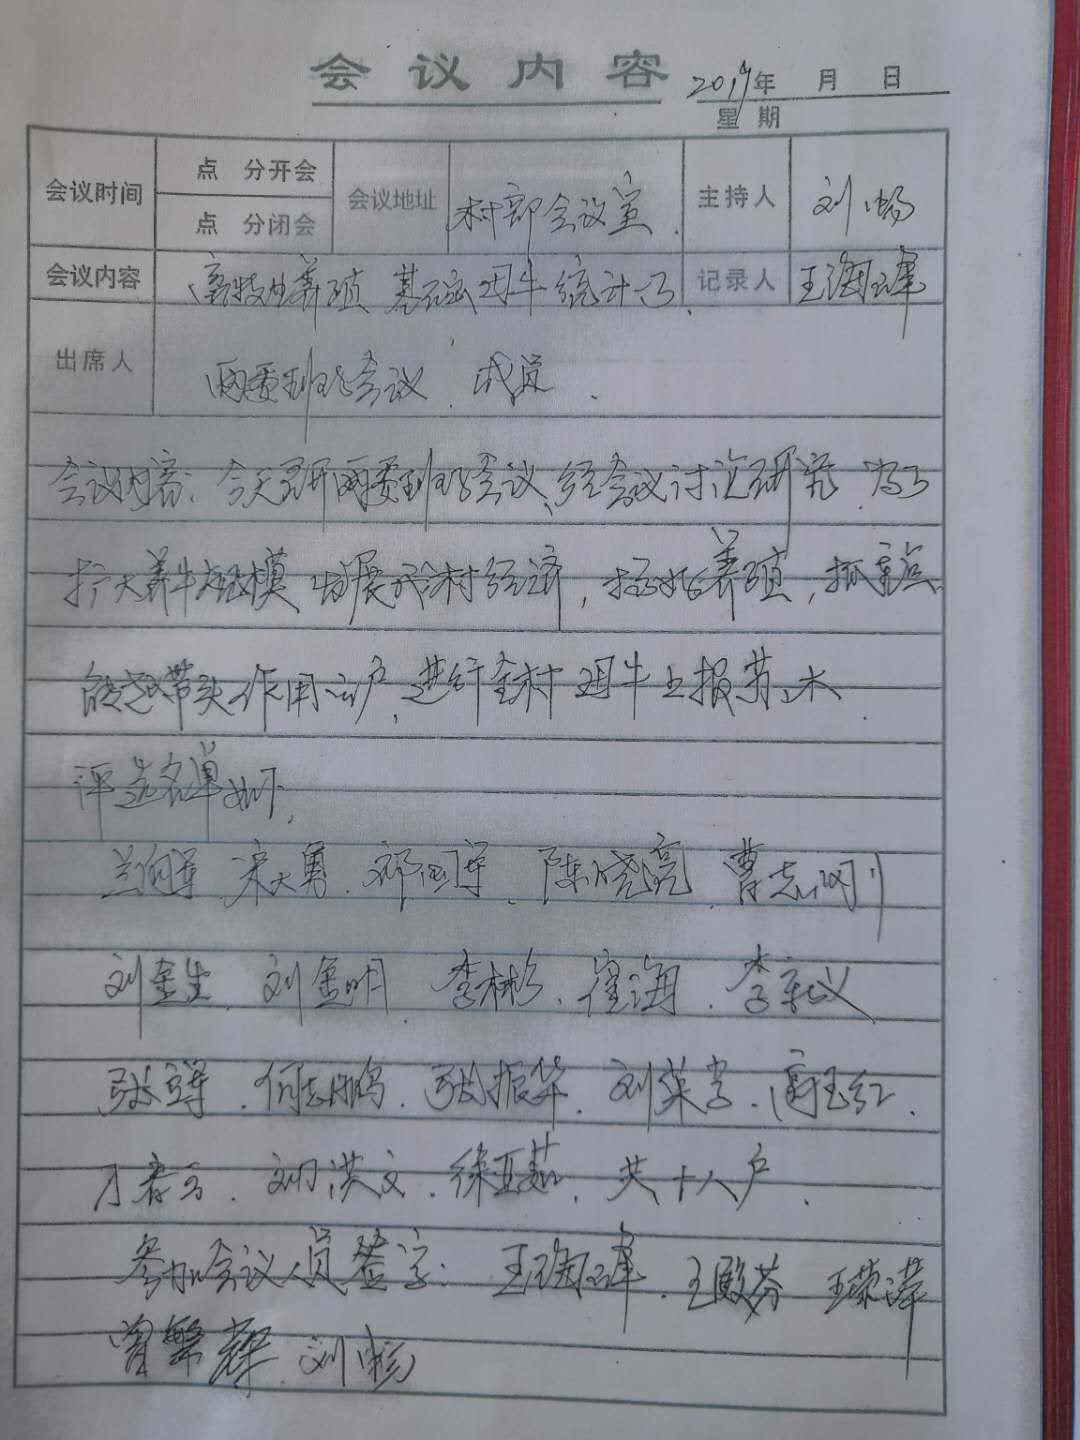 会议内容 2019年 月 日
星期
会议时间 点 分开会 会议地址 村部会议室 主持人 刘畅
点 分闭会
会议内容 养殖 基础母牛统计 记录人 王海峰
出席人 两委班子会议 成员
会议内容: 今天召开两委班子会议、经会议讨论研究 为了
扩大养牛规模 发展我村经济, 搞好养殖, 抓重点
能起带头作用 户, 进行全村母牛上报
评选名单如下,
兰向军 宋大勇. 祁国军. 陈晓亮. 曹志刚
刘金生. 刘金明. 李彬彬. 崔海. 李义
张军. 何志鹏. 张振华. 刘英孝. 高玉红.
刘洪文. 徐亚茹. 共十八户.
参加会议人员签字: 王海峰. 王殿芬 王荣萍
曾繁辉. 刘畅